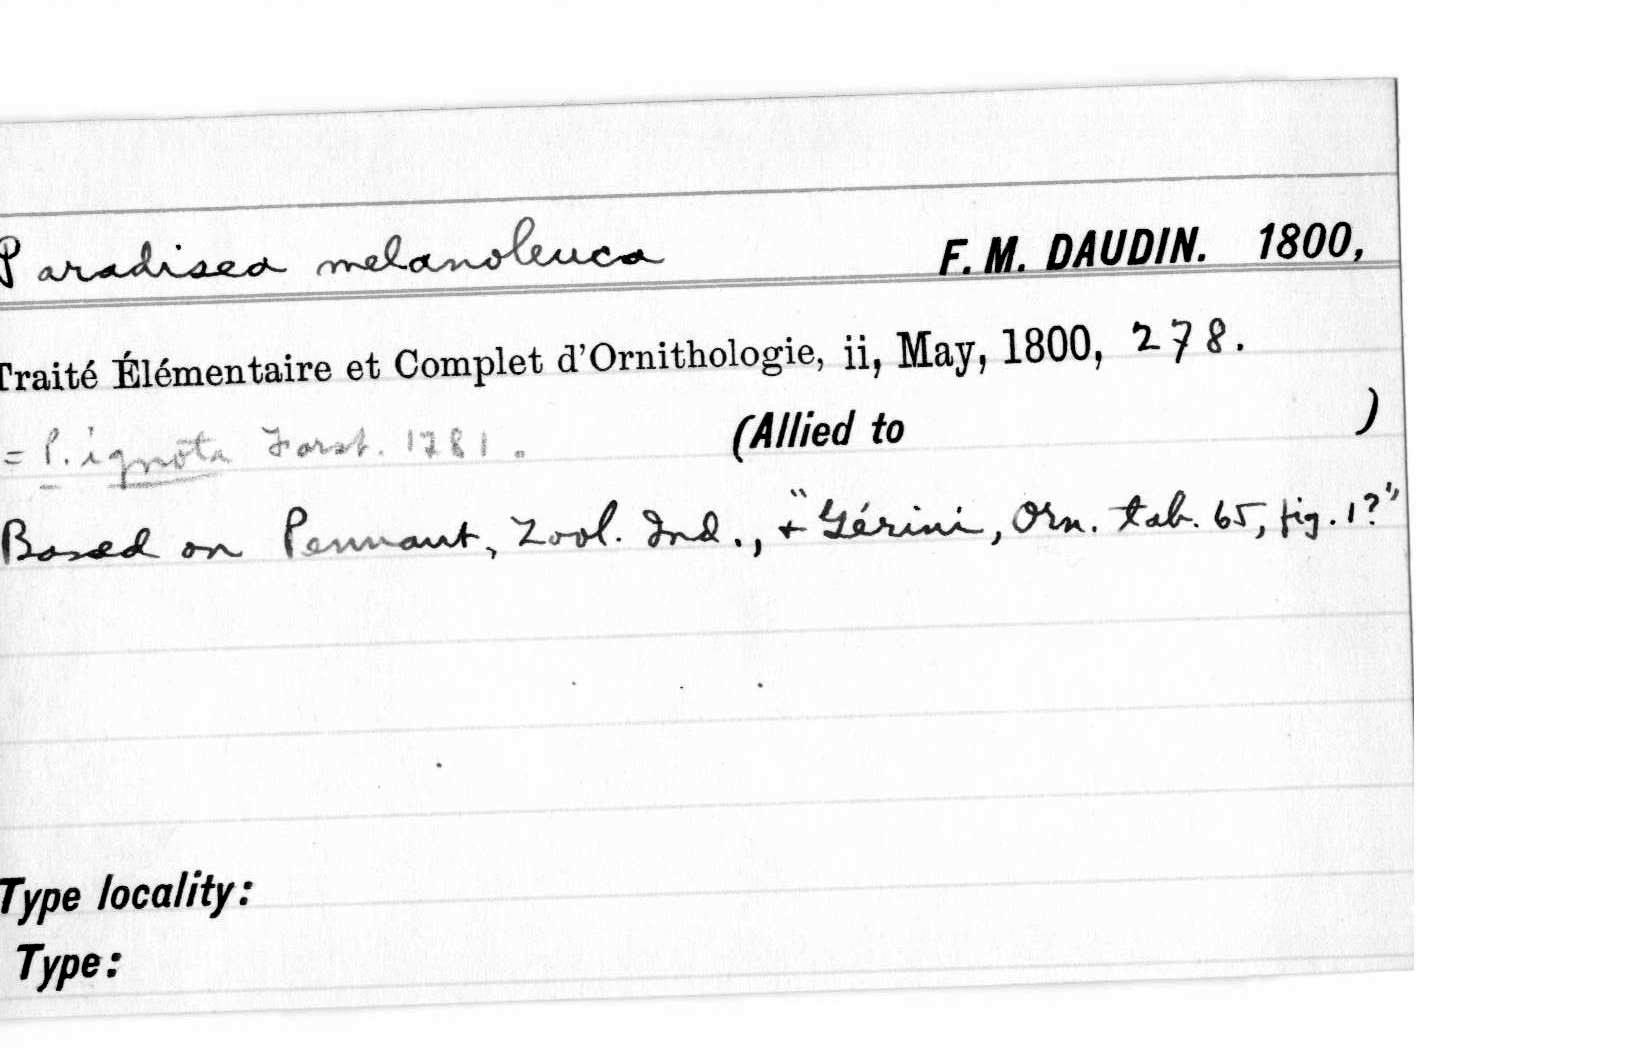 Paradisea melanoleuca F. M. DAUDIN. 1800,
Traité Élémentaire et Complet d'Ornithologie, ii, May, 1800, 278.
= P. ignota Forst. 1781. (Allied to )
Based on Pennant, Zool. Ind., + "Gérini, Orn. tab. 65, fig. 1?"
Type locality:
Type: